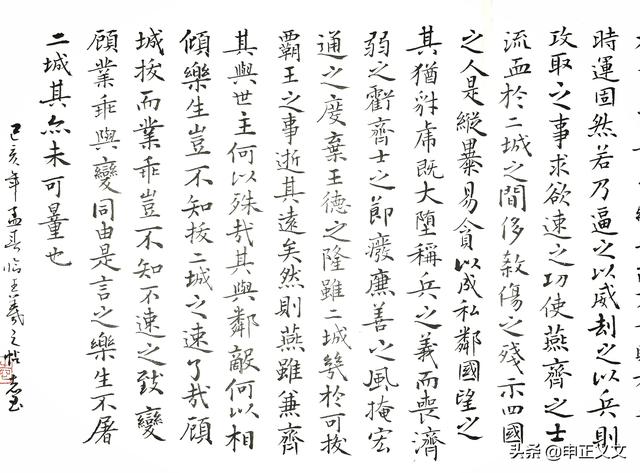 時運固然若乃逼之以威刦之以兵則
攻取之事求欲速之功使燕齊之士
流血於二城之間侈敘傷之殘示四國
之人是縱暴易貪以成私鄰國望之
其猶豺虎既大墮稱兵之義而喪濟
弱之虧齊士之節癈廉善之風掩宏
通之度棄王德之隆雖二城幾於可拔
霸王之事逝其遠矣然則燕雖兼齊
其與世主何以殊哉其與鄰敵何以相
傾樂生豈不知拔二城之速了哉顧
城拔而業乖豈不知不速之致變
顧業乖與變同由是言之樂生不屠
二城其亦未可量也
己亥年孟春临王羲之帖
头条 @申正义文